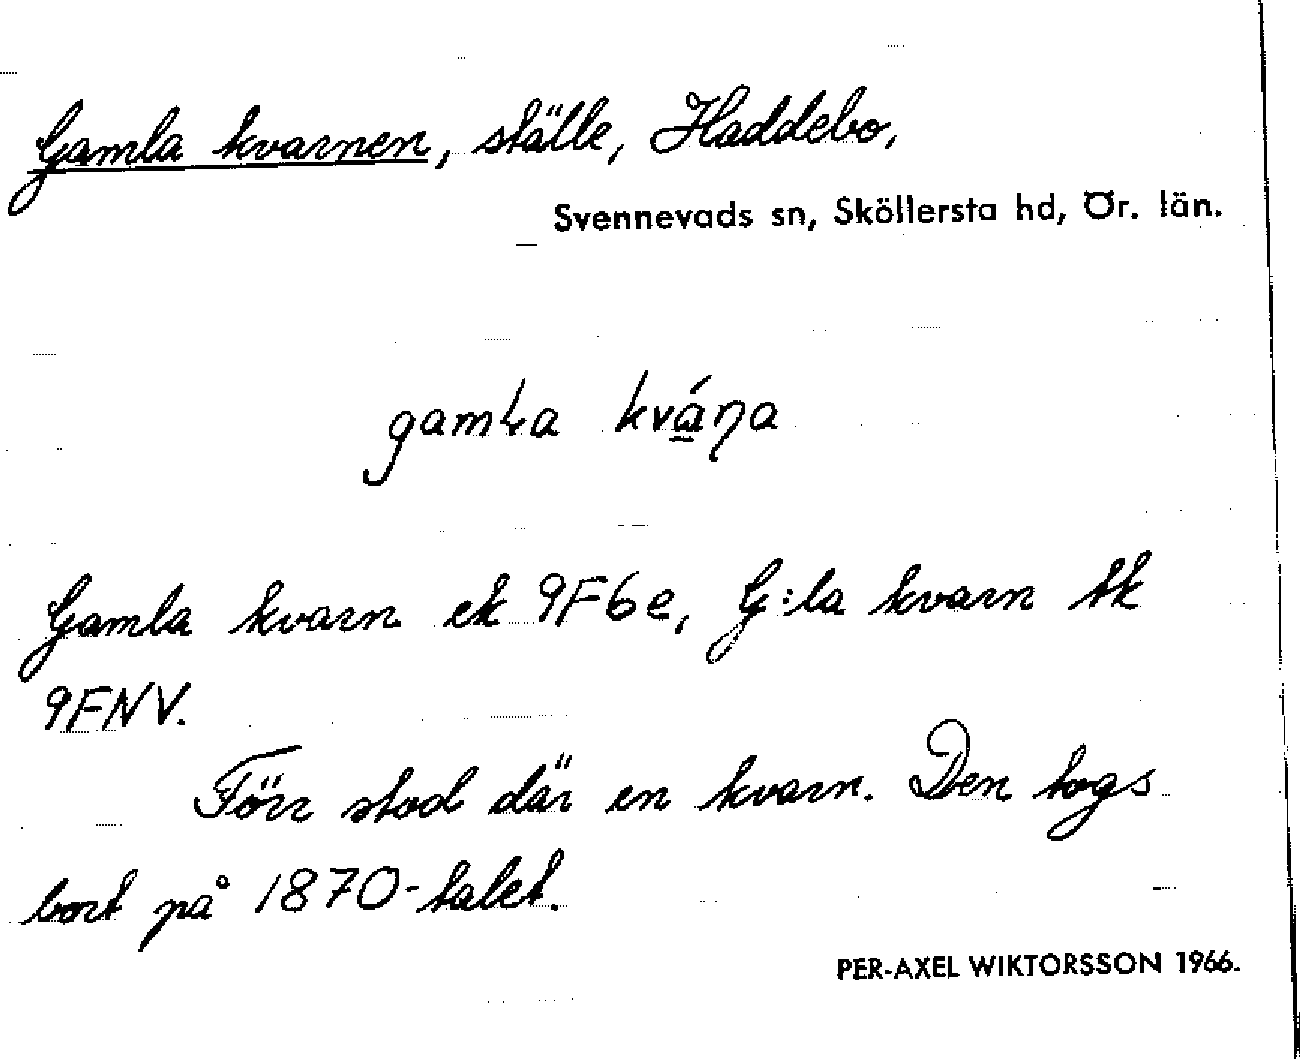 Gamla kvarnen, ställe, Haddebo,
Svennevads sn, Sköllersta hd, Ör. län.
gamɫa kvá̱ɳa
Gamla kvarn ek 9F6e, G:la kvarn tk
9FNV.
Förr stod där en kvarn. Den togs
bort på 1870-talet.
PER-AXEL WIKTORSSON 1966.